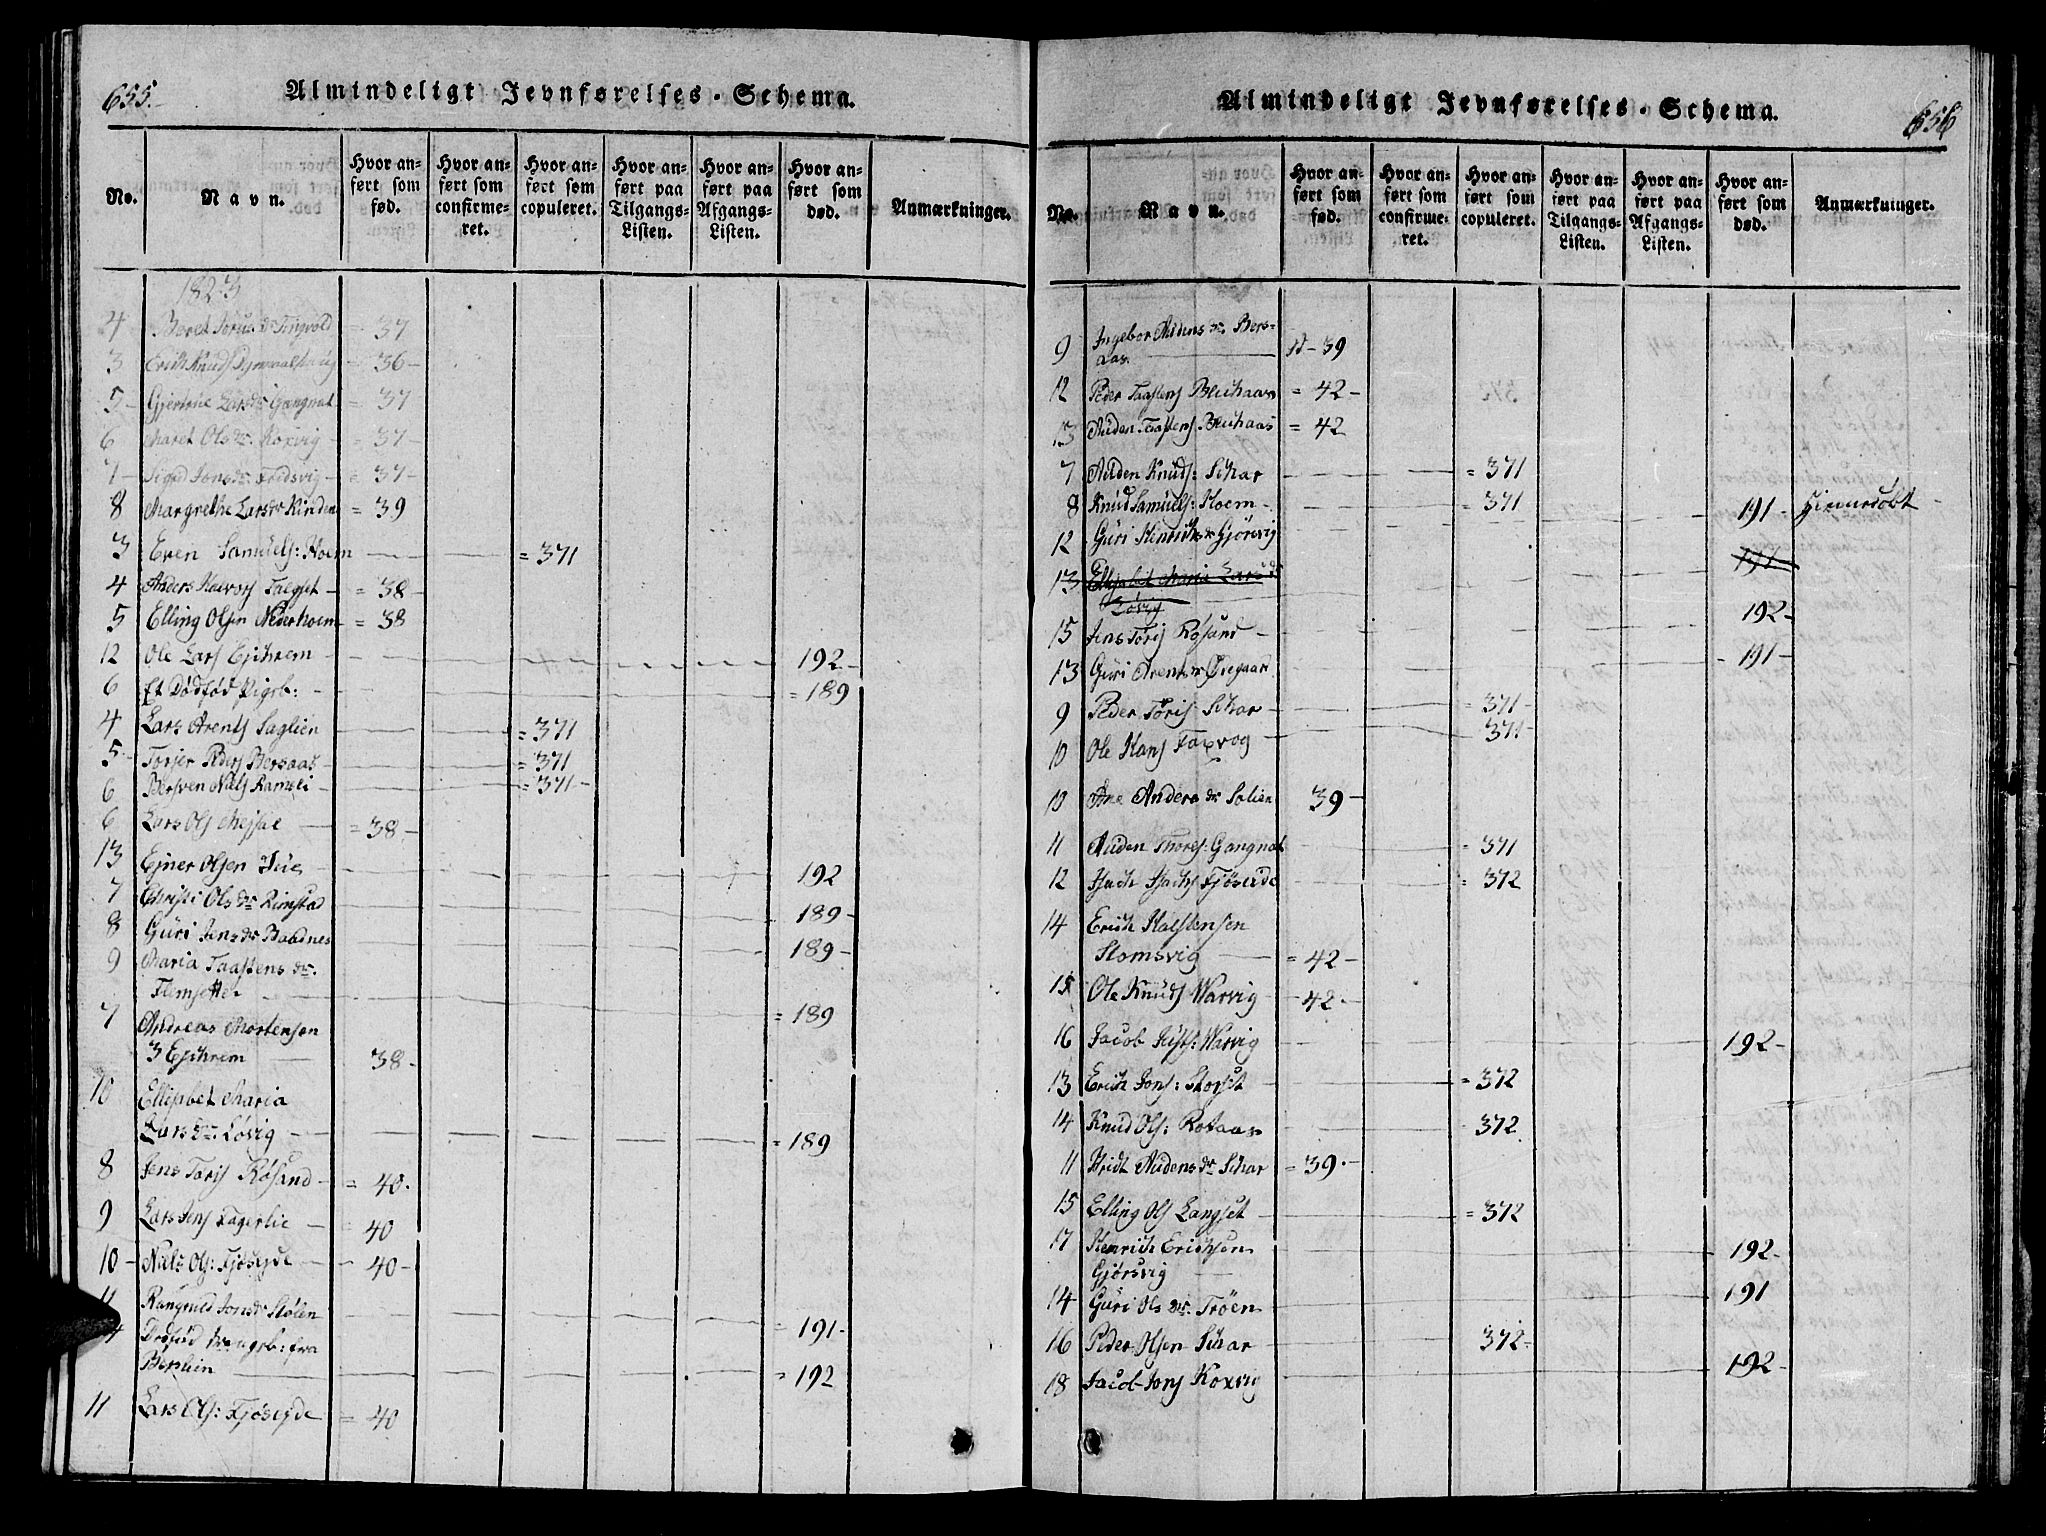 655.
Almindeligt Jevnførelses-Schema.
No.
Navn.
Hvor an-
ført som
fød.
Hvor an-
ført som
confirme-
ret.
Hvor an-
ført som
copuleret.
Hvor an-
ført paa
Tilgangs-
Listen.
Hvor an-
ført paa
Afgangs-
Listen.
Hvor an-
ført som
død.
Anmærkninger.
1823
4 Beret Torus Dr Tingvold = 37
3 Erich Knuds = 36 -
5 - Gjertrue Lars Dr Gangnat = 37
6 Maret Ols Dr. Koxvig - = 37 -
7 - Sigrid Jons Dr. Fridsvig - = 37 -
8 Margrethe Lars Dr Rinden = 39
3 Even Samuels: Hoem = 371
4 Anders Halvors Talgset - = 38 -
5 Elling Olsen Nederhoem = 38
12 Ole Lars Ejchrem - 192 -
6 Et Dødfød Pigeb: - = 189
4 Lars Arents Saglien = 371
5 - Torger Peders Bersaas - = 371
6 Bersven Niels Ramsli - = 371 -
6 Lars Ols Mejsal = 38 -
13 Ejner Olsen Heie 192
7 Christi Ols Dr Rimstad 189 -
8 Guri Jens Dr Baadnes 189 -
9 Maria Taastens Dr.
Flemsetter = 189
7 Andreas Mortensen
3 Ejchrem 38 -
10 Ellisabet Maria
Lars Dr. Løvig - = 189
8 Jens Toris Røsand - = 40.
9 Lars Jens Fagerlie - 40
10 - Niels Ols: Fjøseide - 40 -
11 Rangnild Jons Dr Stølen - 191 -
14 Dødfød Drengeb: fra
Berslien = 192
11 Lars Ols: Fjøseyde = 40
656
Almindeligt Jevnførelses-Schema.
No.
Navn.
Hvor an-
ført som
fød.
Hvor an-
ført som
confirme-
ret.
Hvor an-
ført som
copuleret.
Hvor an-
ført paa
Tilgangs-
Listen.
Hvor an-
ført paa
Afgangs-
Listen.
Hvor an-
ført som
død.
Anmærkninger.
9 Ingebor Audens Dr. Bers-
aas. - 39
12 Peder Taastens Bechaas = 42 -
13 Auden Taastens Bechaas = 42
7 Auden Knuds: Schar = 371
8 Knud Samuels: Hoem - = 371
12 Guri Henrichs Dr Gjörsvig 191 - hiemedøbt -
13 Ellisabet Maria Lars Dr
Løvig 191
15 Jens Toris Røsand - 192 -
13 Guri Arents Dr Øregaard - 191 -
9 Peder Toris Schar - = 371 -
10 Ole Hans Foxvog - 371 -
10 Ane Anders Dr Solien 39 -
11 Auden Thores: Gangnat = 371
12 Isach Isachs Fjøseide = 372
14 Erich Halstensen
Stomsvig = 42 -
15 Ole Knuds Warvig - 42 -
16 Jacob Justs: Warvig 192 -
13 Erich Jons: Storset = 372
14 Knud Ols: Rotaas 372.
11  Hridt Audens Dr Schar = 39. -
15 Elling Ols Langset = 372
17 Henrich Erichsen
Gjörsvig 192 -
14 Guri Ols Dr. Trøen 191
16 Peder Olsen Schar 372 -
18 Jacob Jons Koxvig 192 -